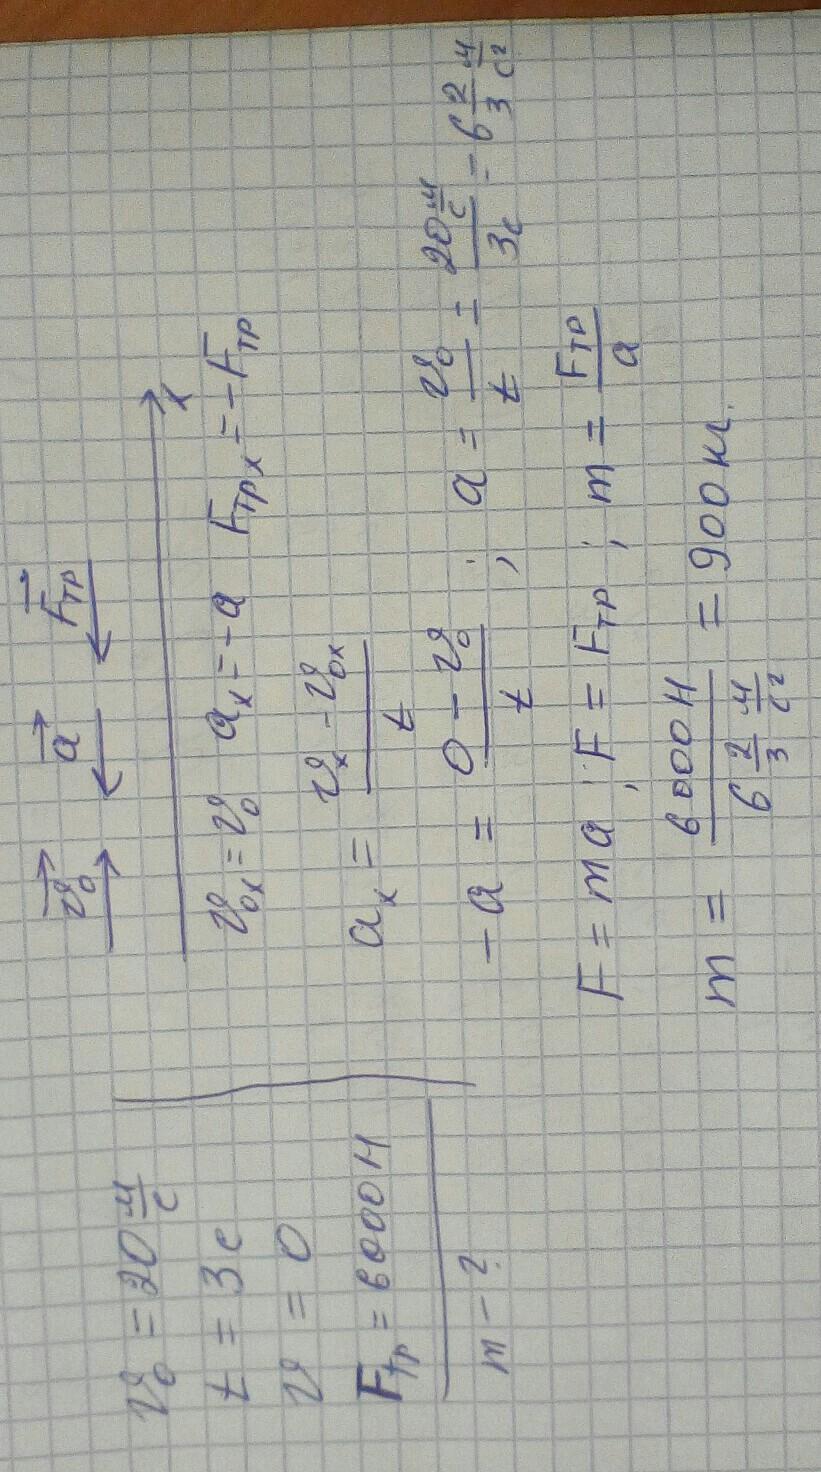 v₀ = 20 м/с
t = 3с
v = 0
Fтр = 6000 Н
m - ?
v₀ a Fтр
x
v₀ₓ = v₀ aₓ = -a Fтрₓ = -Fтр
aₓ = (vₓ - v₀ₓ)/t
-a = (0 - v₀)/t ; a = v₀/t = (20 м/с)/(3с) = 6 2/3 м/с²
F = ma ; F = Fтр ; m = Fтр/a
m = (6000 Н)/(6 2/3 м/с²) = 900 кг.